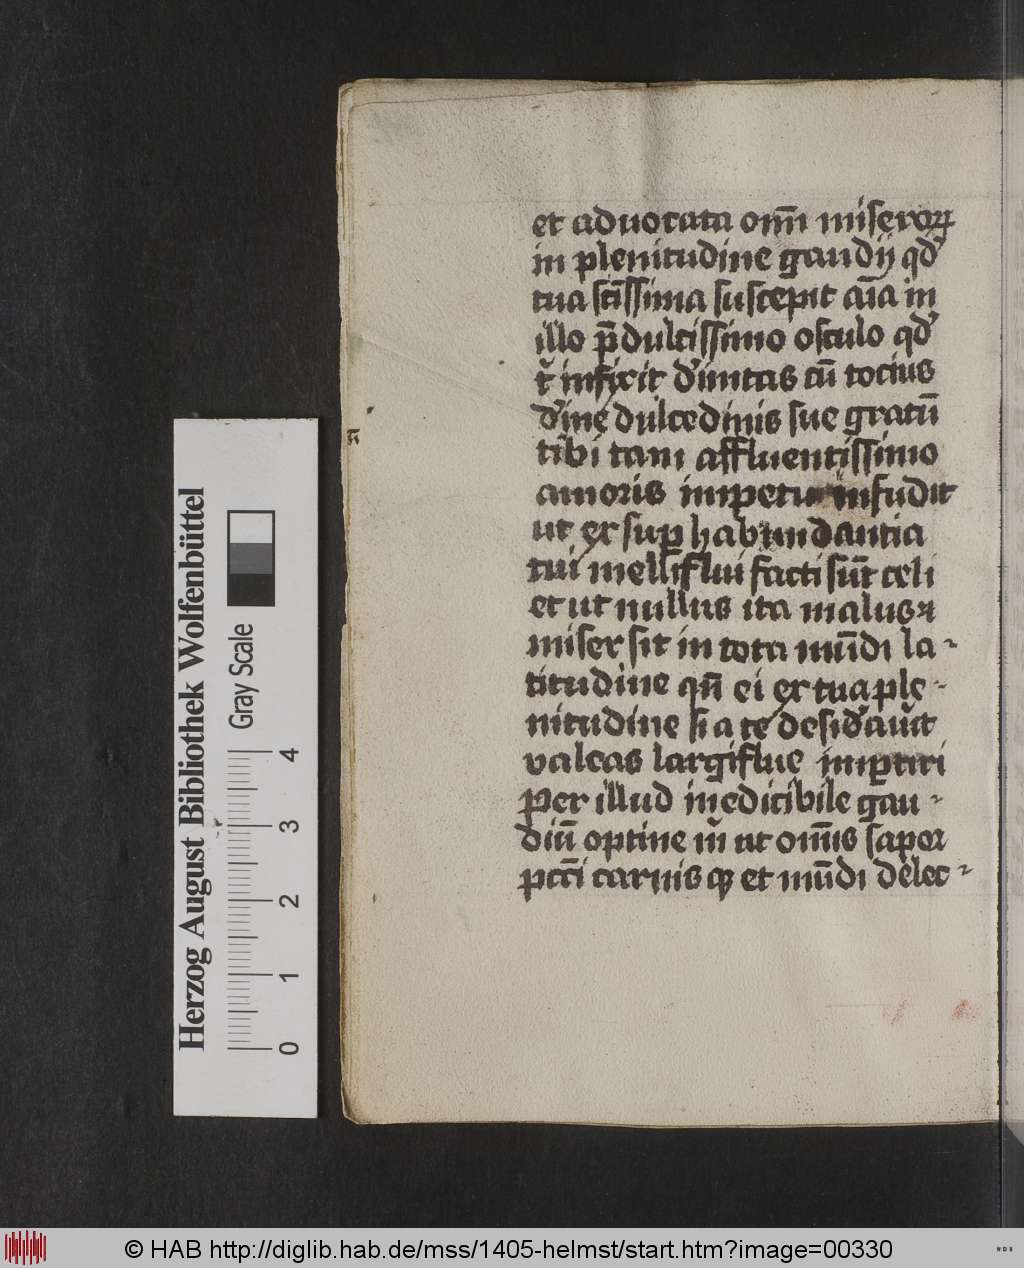 et aduocata om̅ miseroꝝ
in plenitudine gaudij qd̕
tua sc̅issima suscepit ai̅a in
illo p̅dulcissimo osculo qd̕
t̕ infixit d̕initas cu̅ tocius
d̕ine dulcedinis sue gratu̅
tibi tam affluentissimo
amoris impetu infudit
ut ex suꝑ habundantia
tui melliflui facti su̅t celi
et ut nullus ita malus ⁊
miser sit in tota mu̅di la-
titudine qn̅ ei ex tua ple-
nitudine si a te desid̕au̕it
valeas largiflue imꝑtiri
Per illud inedicibile gau-
diu̅ optine m̕ ut om̅is sapor
pcc̅i carnis qꝫ et mu̅di delec-
Herzog August Bibliothek Wolfenbüttel
Gray Scale
0 1 2 3 4
© HAB http://diglib.hab.de/mss/1405-helmst/start.htm?image=00330